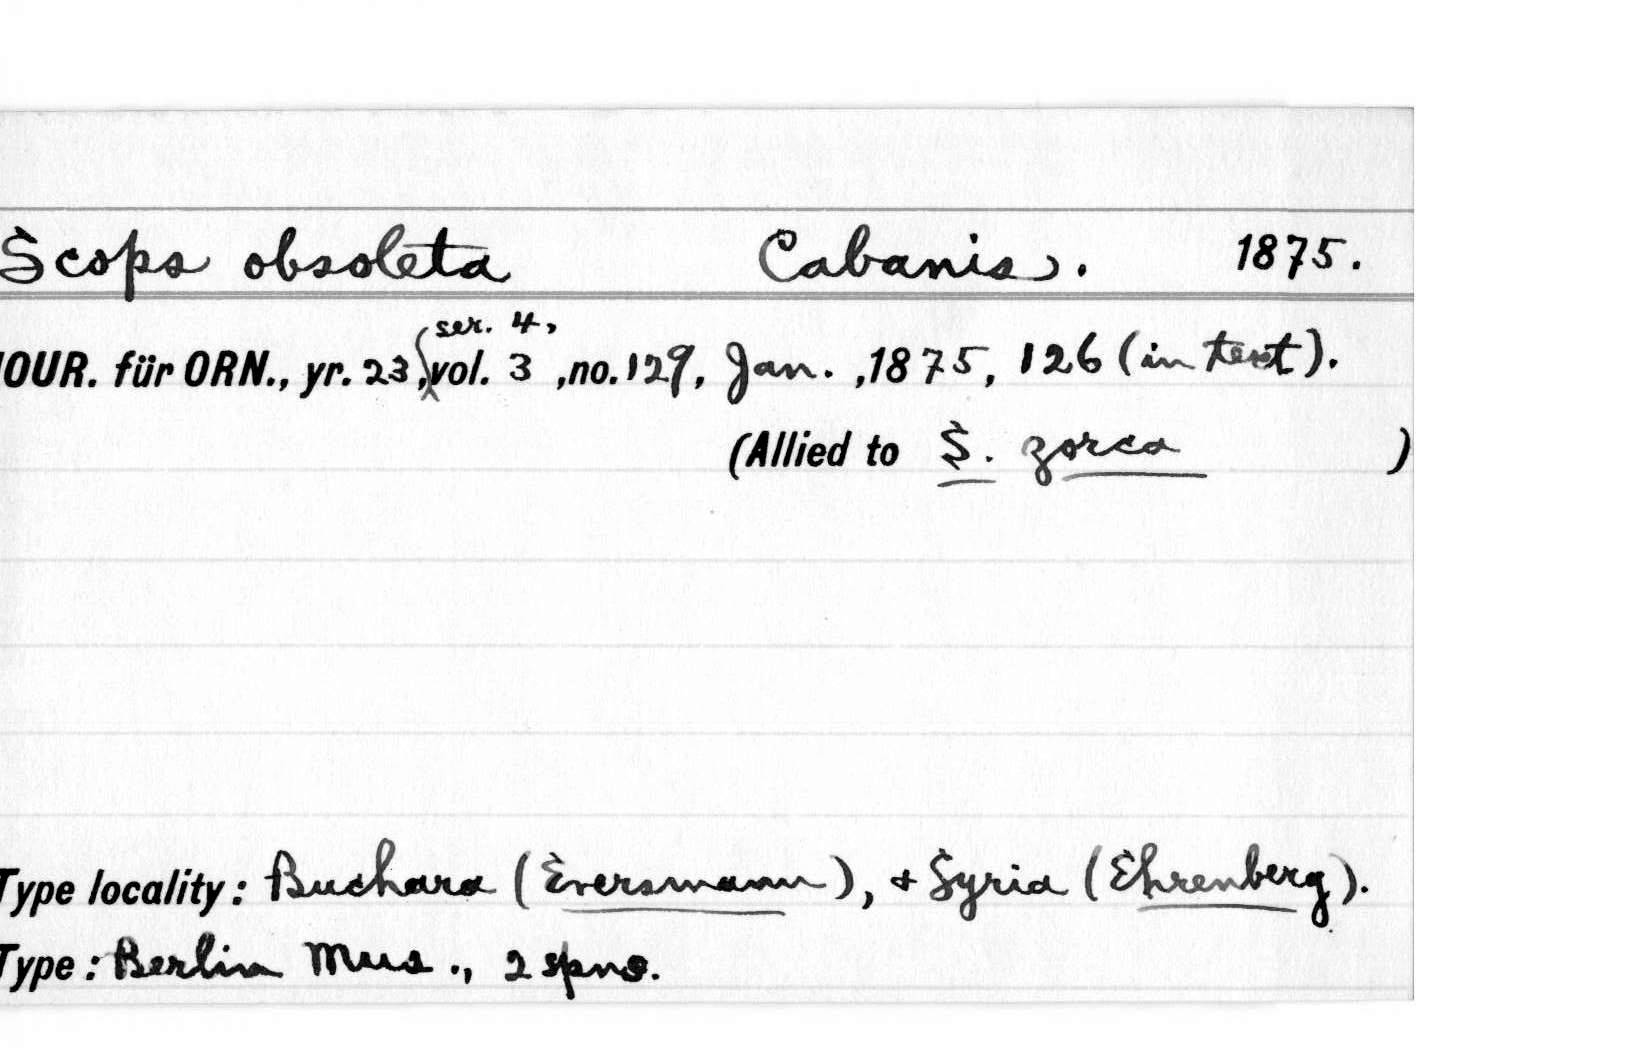 Scops obsoleta Cabanis. 1875.
JOUR. für ORN., yr. 23, ser. 4, vol. 3, no. 129, Jan., 1875, 126 (in text).
(Allied to S. zorca)
Type locality: Buchara (Eversmann), + Syria (Ehrenberg).
Type: Berlin Mus., 2 spns.